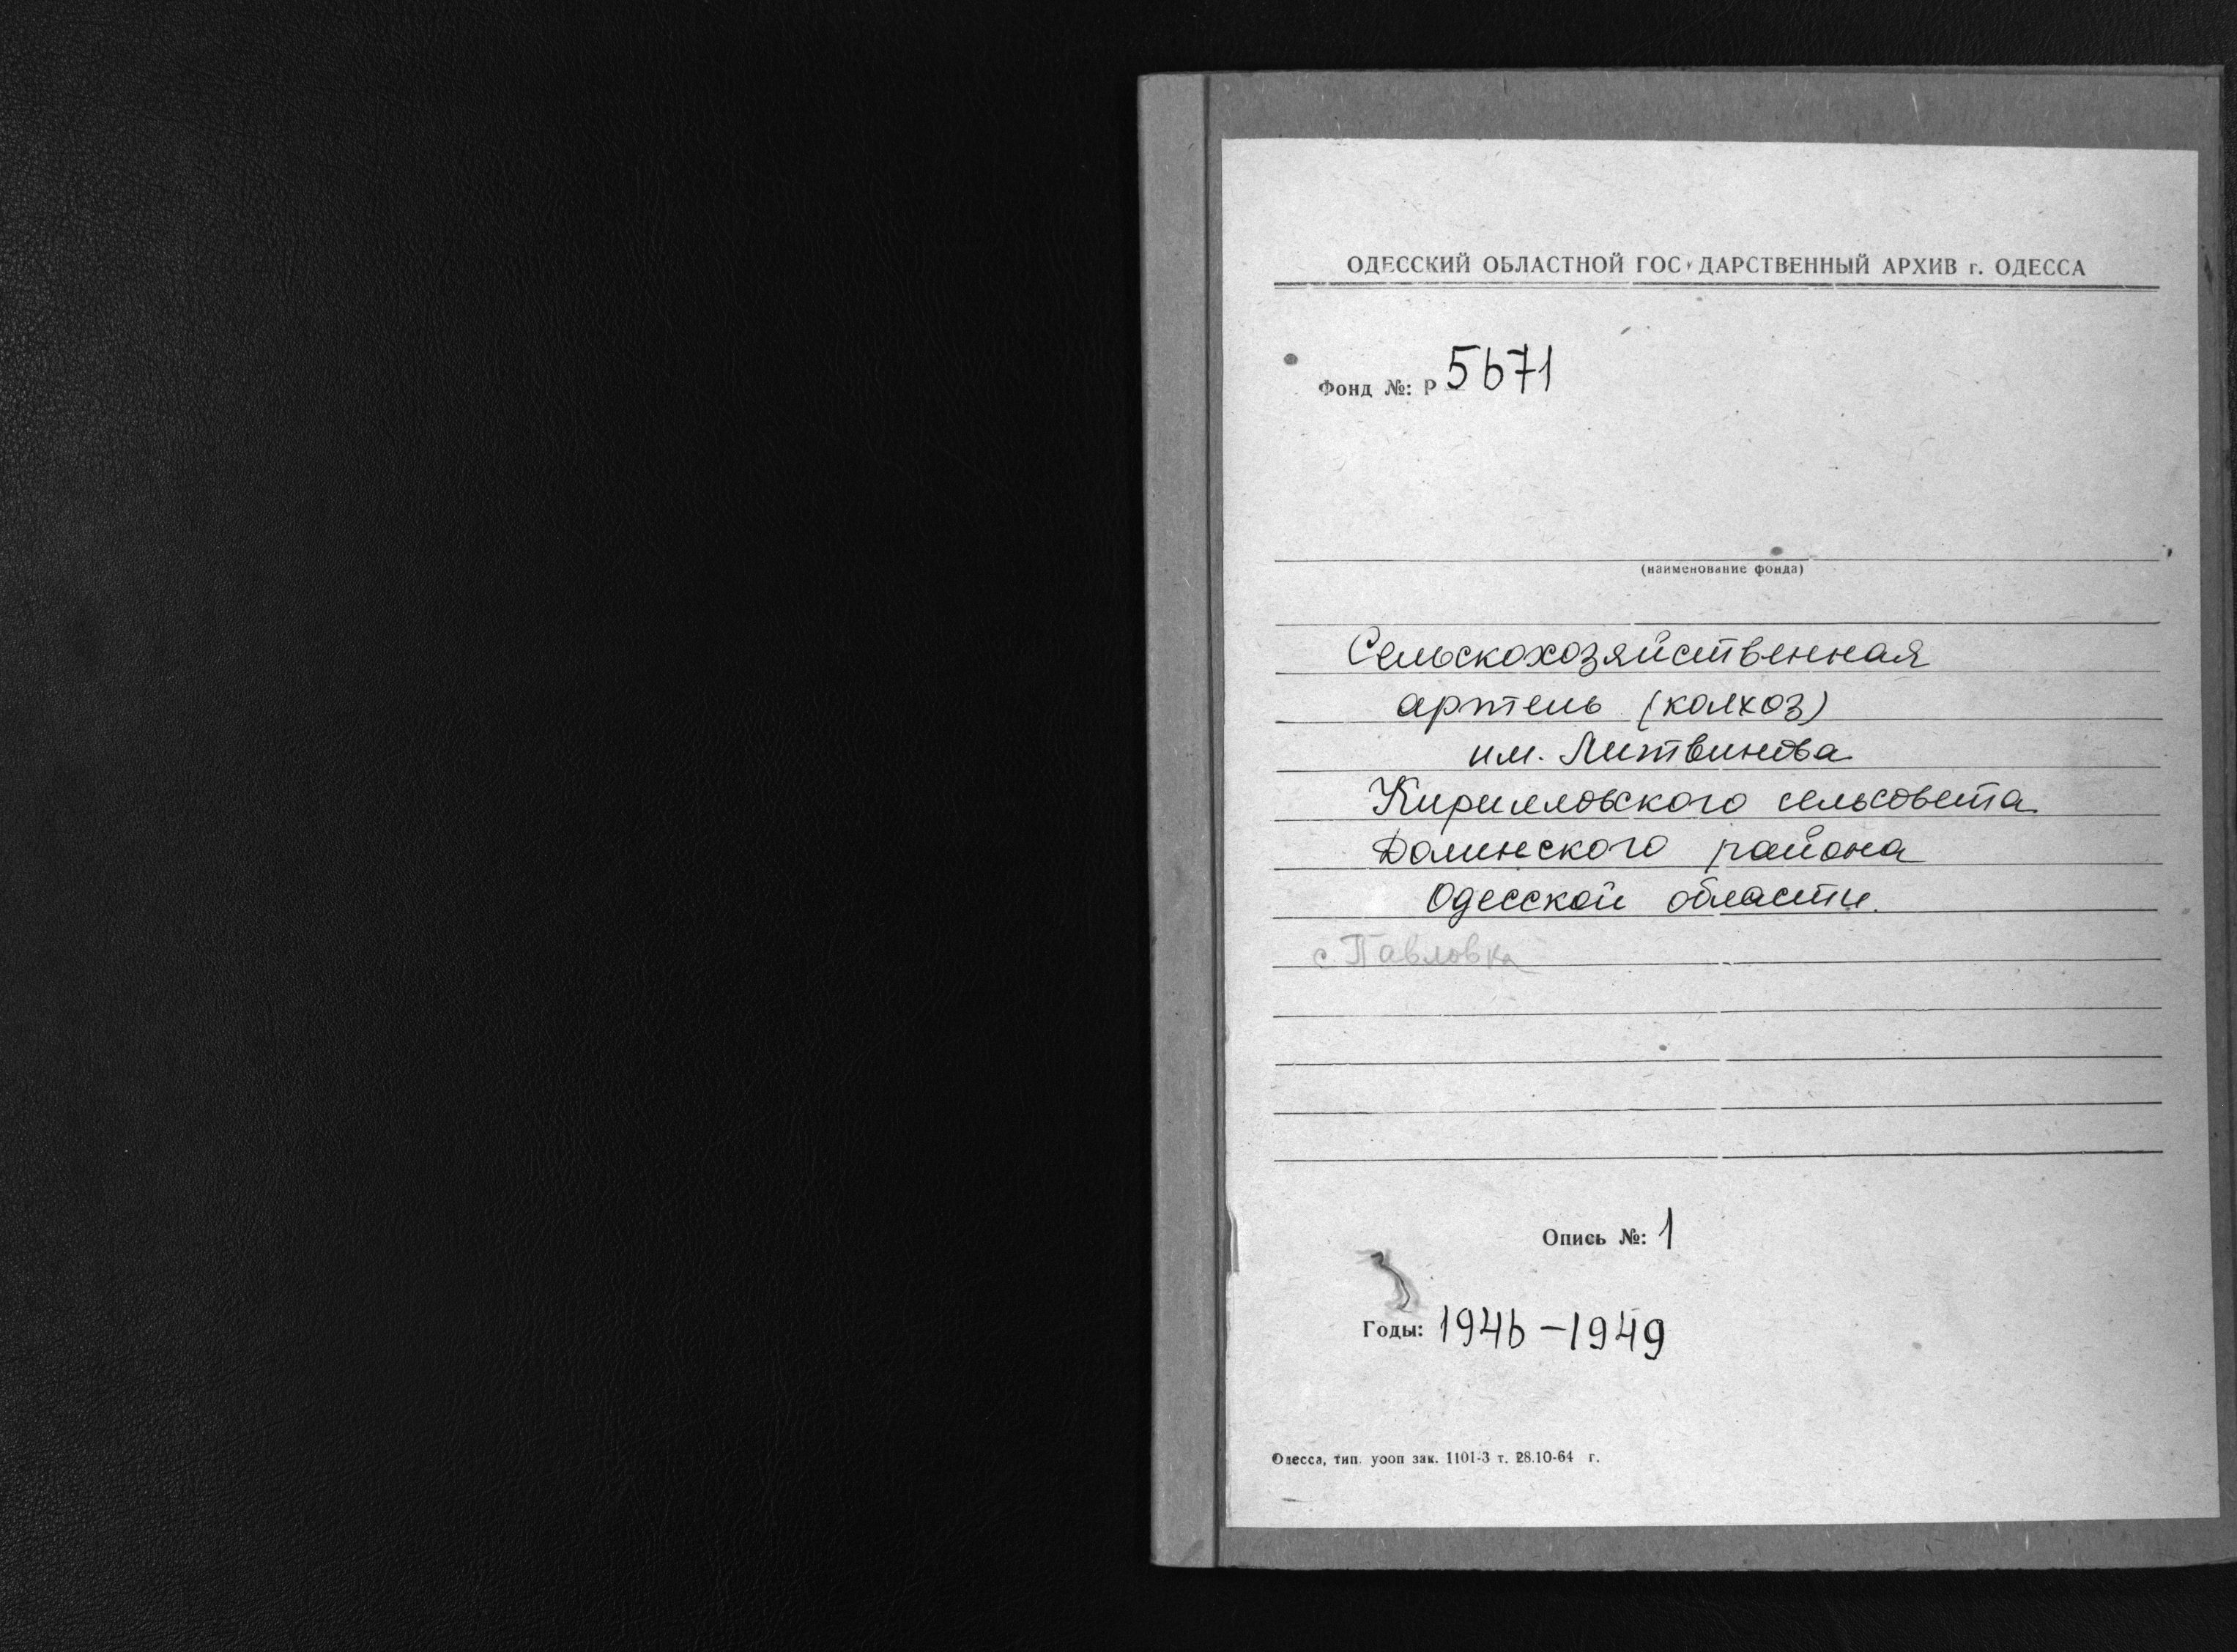 ОДЕССКИЙ ОБЛАСТНОЙ ГОС ДАРСТВЕННЫЙ АРХИВ г. ОДЕССА
Фонд №: Р 5671
(наименование фонда)
Сельскохозяйственная
артель (колхоз)
им. Литвинова
Кирилловского сельсовета
Долинского района
Одесской области.
с. Павловка
Опись №: 1
Годы: 1946-1949
Одесса, тип. уооп зак. 1101-3 т. 28.10-64 г.